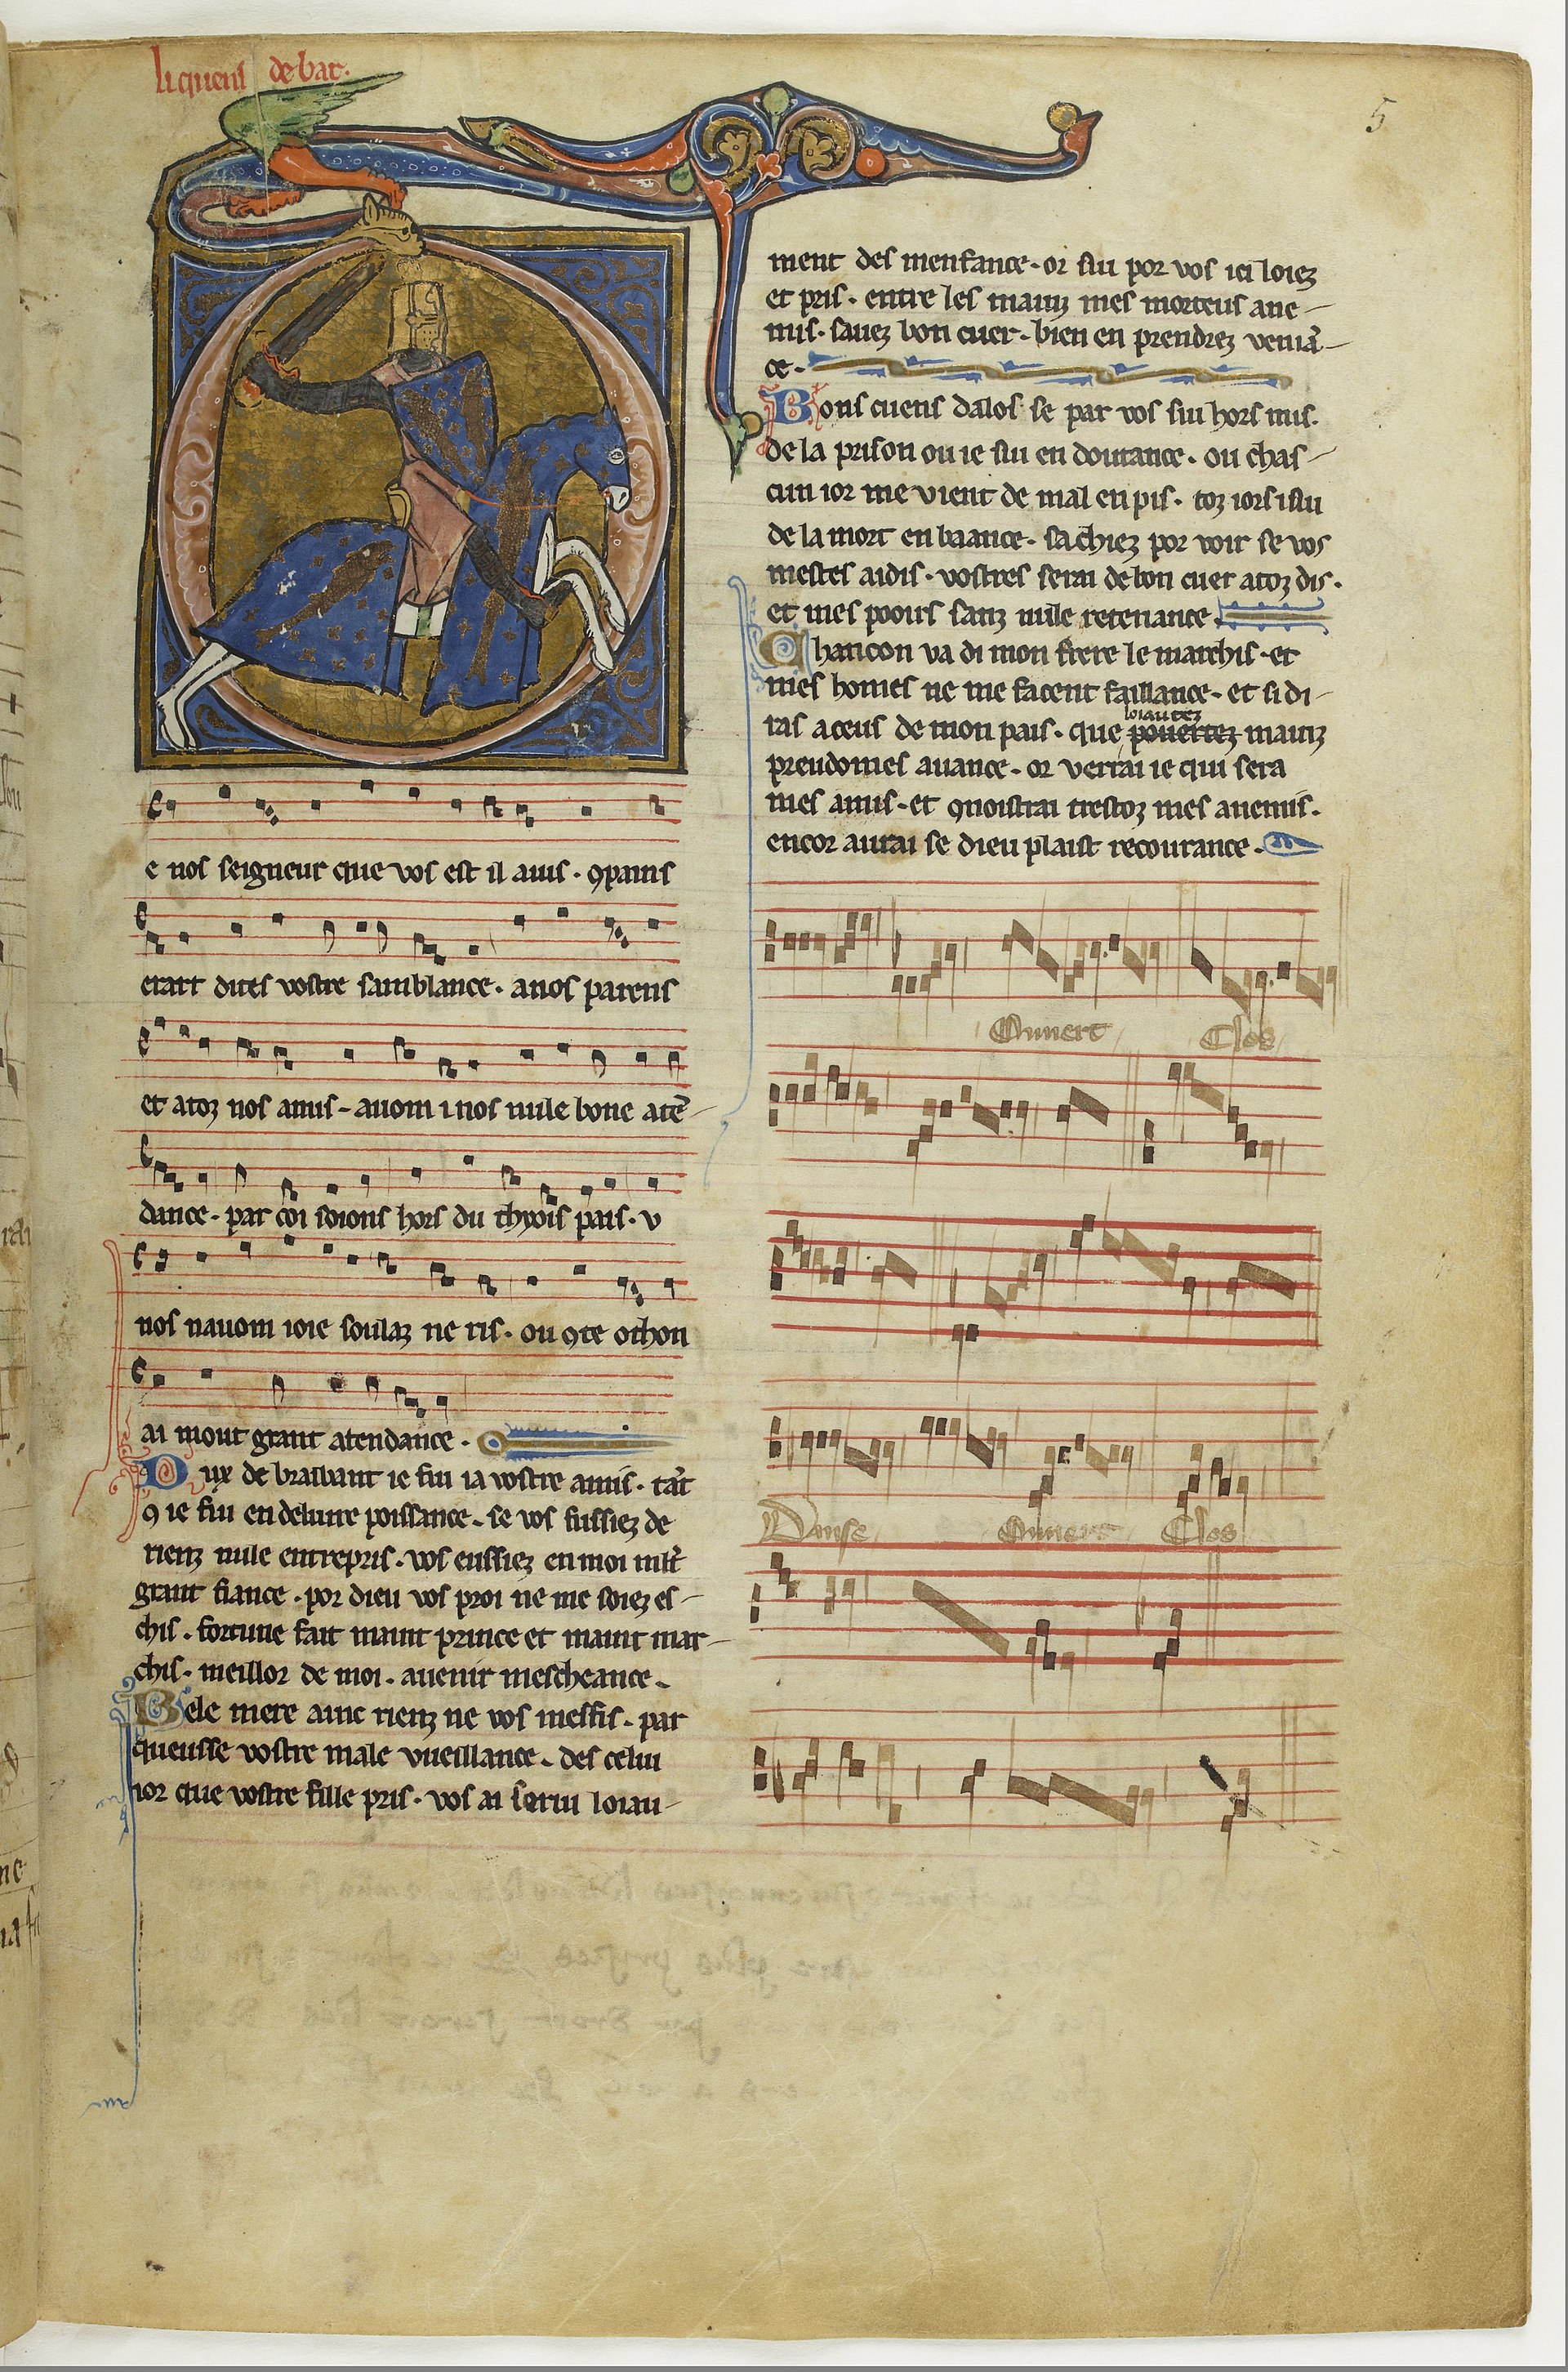 li quens de bar.
5
e nos seigneur que vos est il auis. ꝯpains
erart dites vostre samblance. a nos parens
et a toz nos amis. auom i nos nule bone atē
dance. par coi soions hors du thyois pais. v
nos nauom ioie soulaz ne ris. ou ꝯte othon
ai mout grant atendance.
Dux de braibant ie fui ia vostre amis. tāt
ꝯ ie fui en deliure poissance. se vos fussiez de
rienz nule entrepris. vos eussiez en moi mlt
grant fiance. por dieu vos proi ne me soiez es
chis. fortune fait maint prince et maint mar
chis. meillor de moi. auenir mescheance.
Bele mere ainc rienz ne vos meffis. par
queusse vostre male vueillance. des celui
ior que vostre fille pris. vos ai serui loiau
ment des menfance. or sui por vos ici loiez
et pris. entre les mainz mes morteus ane
mis. sauez bon cuer. bien en prendrez veniā
ce.
Bons cuens dalos se par vos sui hors mis.
de la prison ou ie sui en doutance. ou chas
cun ior me vient de mal en pis. toz iors i sui
de la mort en baance. sachiez por voir se vos
mestes aidis. vostres serai de bon cuer a toz dis.
et mes pooirs sanz nule retenance.
Chancon va di mon frere le marchis. et
mes homes ne me facent faillance. et si di
ras a ceus de mon pais. que pouertez loiautez mainz
preudomes auance. or verrai ie qui sera
mes amis. et ꝯnoistrai trestoz mes anemis.
encor aurai se dieu plaist recourance.
Ouuert Clos
Danse Ouuert Clos